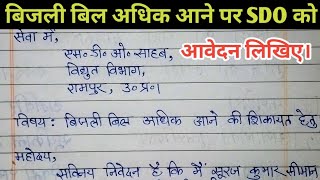 बिजली बिल अधिक आने पर SDO को
आवेदन लिखिए।
सेवा में,
एस॰ डी॰ ओ॰ साहब,
विद्युत विभाग,
रामपुर, उ॰ प्र॰।
विषय: बिजली बिल अधिक आने की शिकायत हेतु
महोदय,
सविनय निवेदन है कि मैं सूरज कुमार सीमान